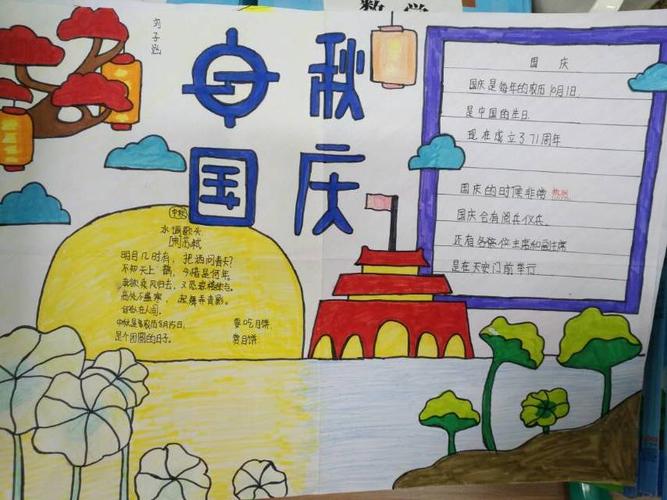 数学
中秋
国庆
国庆
国庆是每年的农历10月1日
是中国的生日
现在成立了71周年
国庆的时候非常热闹
国庆会有阅兵仪式
还有各各位主席和副主席
是在天安门前举行
中秋
水调歌头
[宋]苏轼
明月几时有，把酒问青天？
不知天上宫阙，今夕是何年。
我欲乘风归去，又恐琼楼玉宇。
高处不胜寒，起舞弄清影。
何似在人间。
中秋是每农历8月15日，要吃月饼
是个团圆的日子。赏月饼